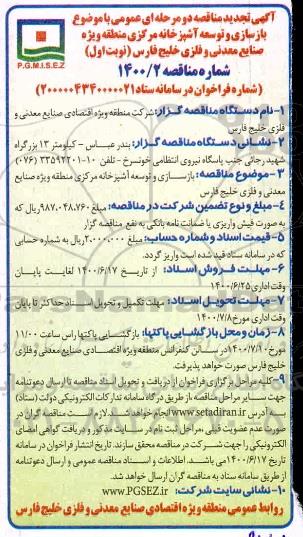 آگهی تجدید مناقصه دو مرحله ای عمومی با موضوع
بازسازی و توسعه آشپزخانه مرکزی منطقه ویژه
صنایع معدنی و فلزی خلیج فارس (نوبت اول)
P.G.M.I.S.E.Z
شماره مناقصه ۱۴۰۰/۲
(شماره فراخوان در سامانه ستاد ۲۰۰۰۰۰۴۳۴۰۰۰۰۰۲۱)
۱-نام دستگاه مناقصه گزار: شرکت منطقه ویژه اقتصادی صنایع معدنی و
فلزی خلیج فارس
۲-نشانی دستگاه مناقصه گزار: بندر عباس - کیلومتر ۱۳ بزرگراه
شهید رجائی جنب پاسگاه نیروی انتظامی خونسرخ - تلفن ۱۰-۳۳۵۹۲۲۰۱ (۰۷۶)
۳-موضوع مناقصه: بازسازی و توسعه آشپزخانه مرکزی منطقه ویژه صنایع
معدنی و فلزی خلیج فارس
۴-مبلغ و نوع تضمین شرکت در مناقصه: مبلغ ۹۸۷.۰۴۸.۷۶۰ ریال که
به صورت فیش واریزی یا ضمانت نامه بانکی به نفع مناقصه گزار
۵-قیمت اسناد و شماره حساب: مبلغ ۲.۰۰۰.۰۰۰ ریال به شماره حسابی
که در سامانه ستاد قید شده است واریز گردد.
۶-مهلت فروش اسناد: از تاریخ ۱۴۰۰/۶/۱۷ لغایت پایان
وقت اداری ۱۴۰۰/۶/۲۵
۷-مهلت تحویل اسناد: مهلت تکمیل و تحویل اسناد حداکثر تا پایان
وقت اداری مورخ ۱۴۰۰/۷/۸
۸-زمان و محل بازگشایی پاکتها: بازگشایی پاکتها راس ساعت ۱۱/۰۰
مورخ ۱۴۰۰/۷/۱۰ در سالن کنفرانس منطقه ویژه اقتصادی صنایع معدنی و فلزی
خلیج فارس صورت خواهد پذیرفت.
۹-کلیه مراحل برگزاری فراخوان از دریافت و تحویل اسناد مناقصه تا ارسال دعوتنامه
جهت سایر مراحل مناقصه از طریق درگاه سامانه تدارکات الکترونیکی دولت (ستاد)
به آدرس www.setadiran.ir انجام خواهد شد. لازم است مناقصه گران در
صورت عدم عضویت قبلی، مراحل ثبت نام در سایت مذکور و دریافت گواهی امضای
الکترونیکی را جهت شرکت در مناقصه محقق سازند. تاریخ انتشار فراخوان در سامانه
تاریخ ۱۴۰۰/۶/۱۷ می باشد. اطلاعات و اسناد مناقصه عمومی و ارسال دعوتنامه
از طریق سامانه ستاد به مناقصه گران ارسال خواهد شد.
۱۰-نشانی سایت شرکت: www.PGSEZ.ir
روابط عمومی منطقه ویژه اقتصادی صنایع معدنی و فلزی خلیج فارس